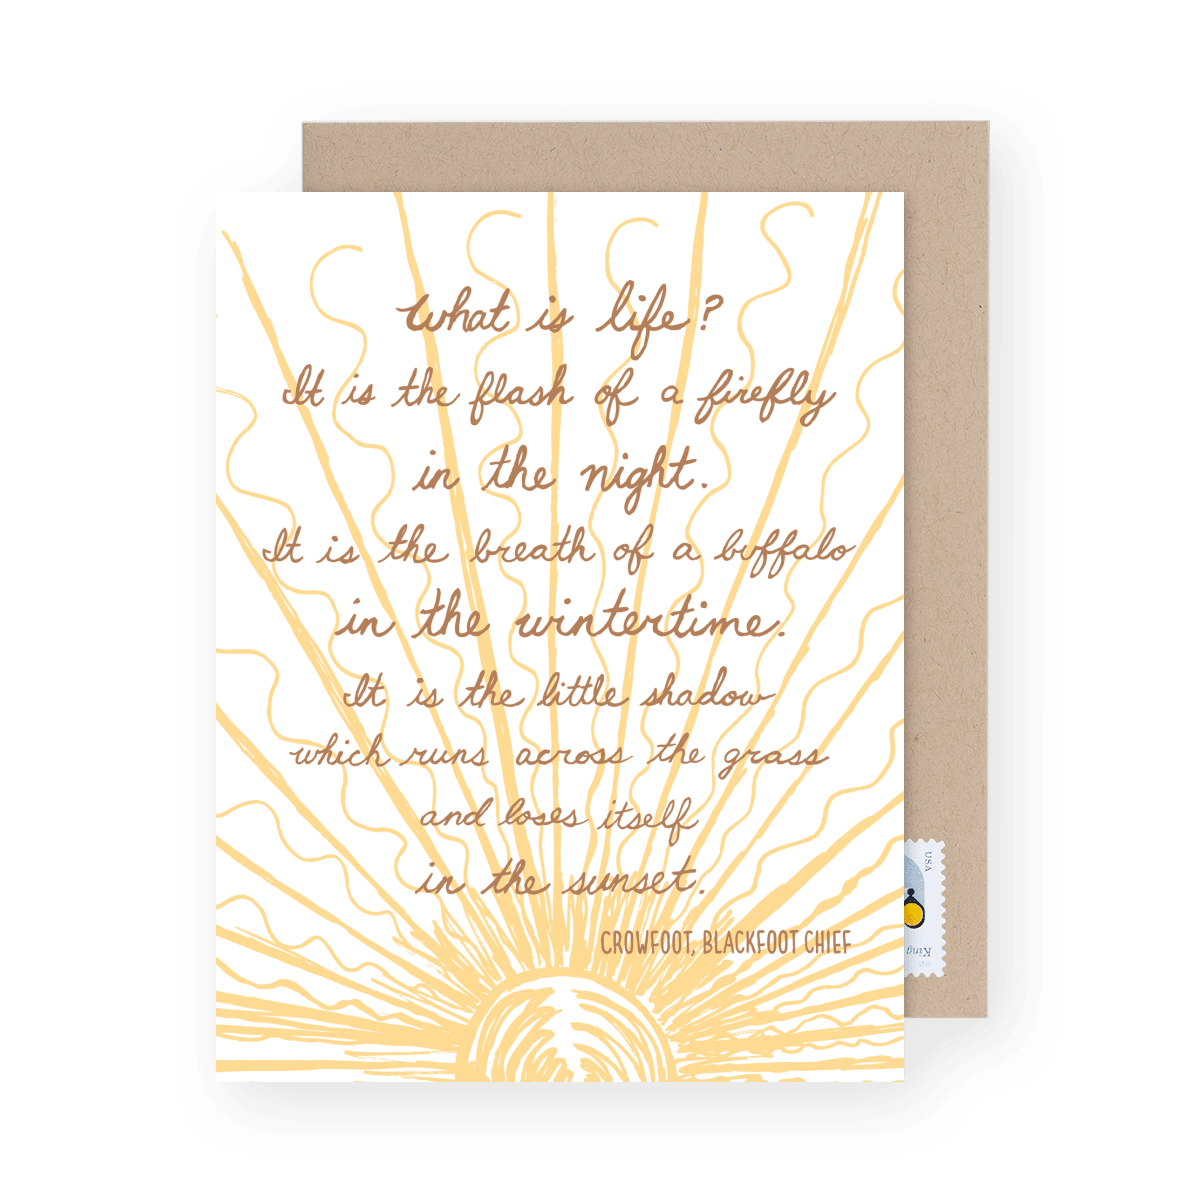 What is life?
It is the flash of a firefly
in the night.
It is the breath of a buffalo
in the wintertime.
It is the little shadow
which runs across the grass
and loses itself
in the sunset.
CROWFOOT, BLACKFOOT CHIEF
USA
King